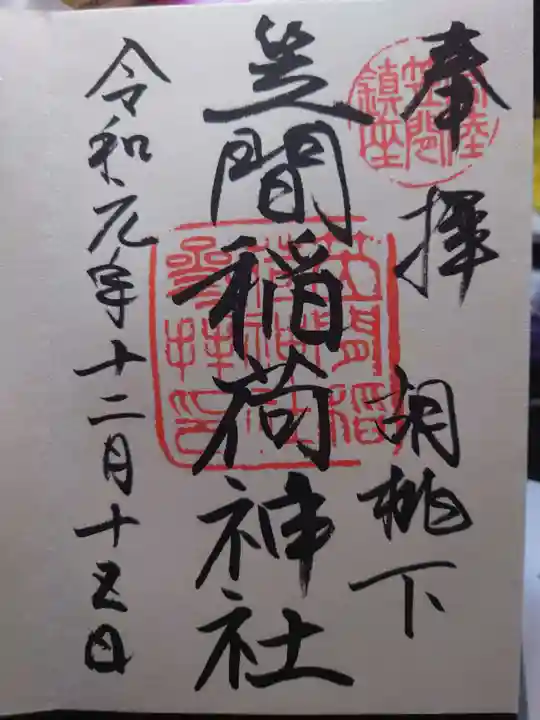 奉拝 胡桃下
常陸
笠間
鎮座
笠間稲荷神社
笠間稲
荷神社
参拝之印
令和元年十二月十五日